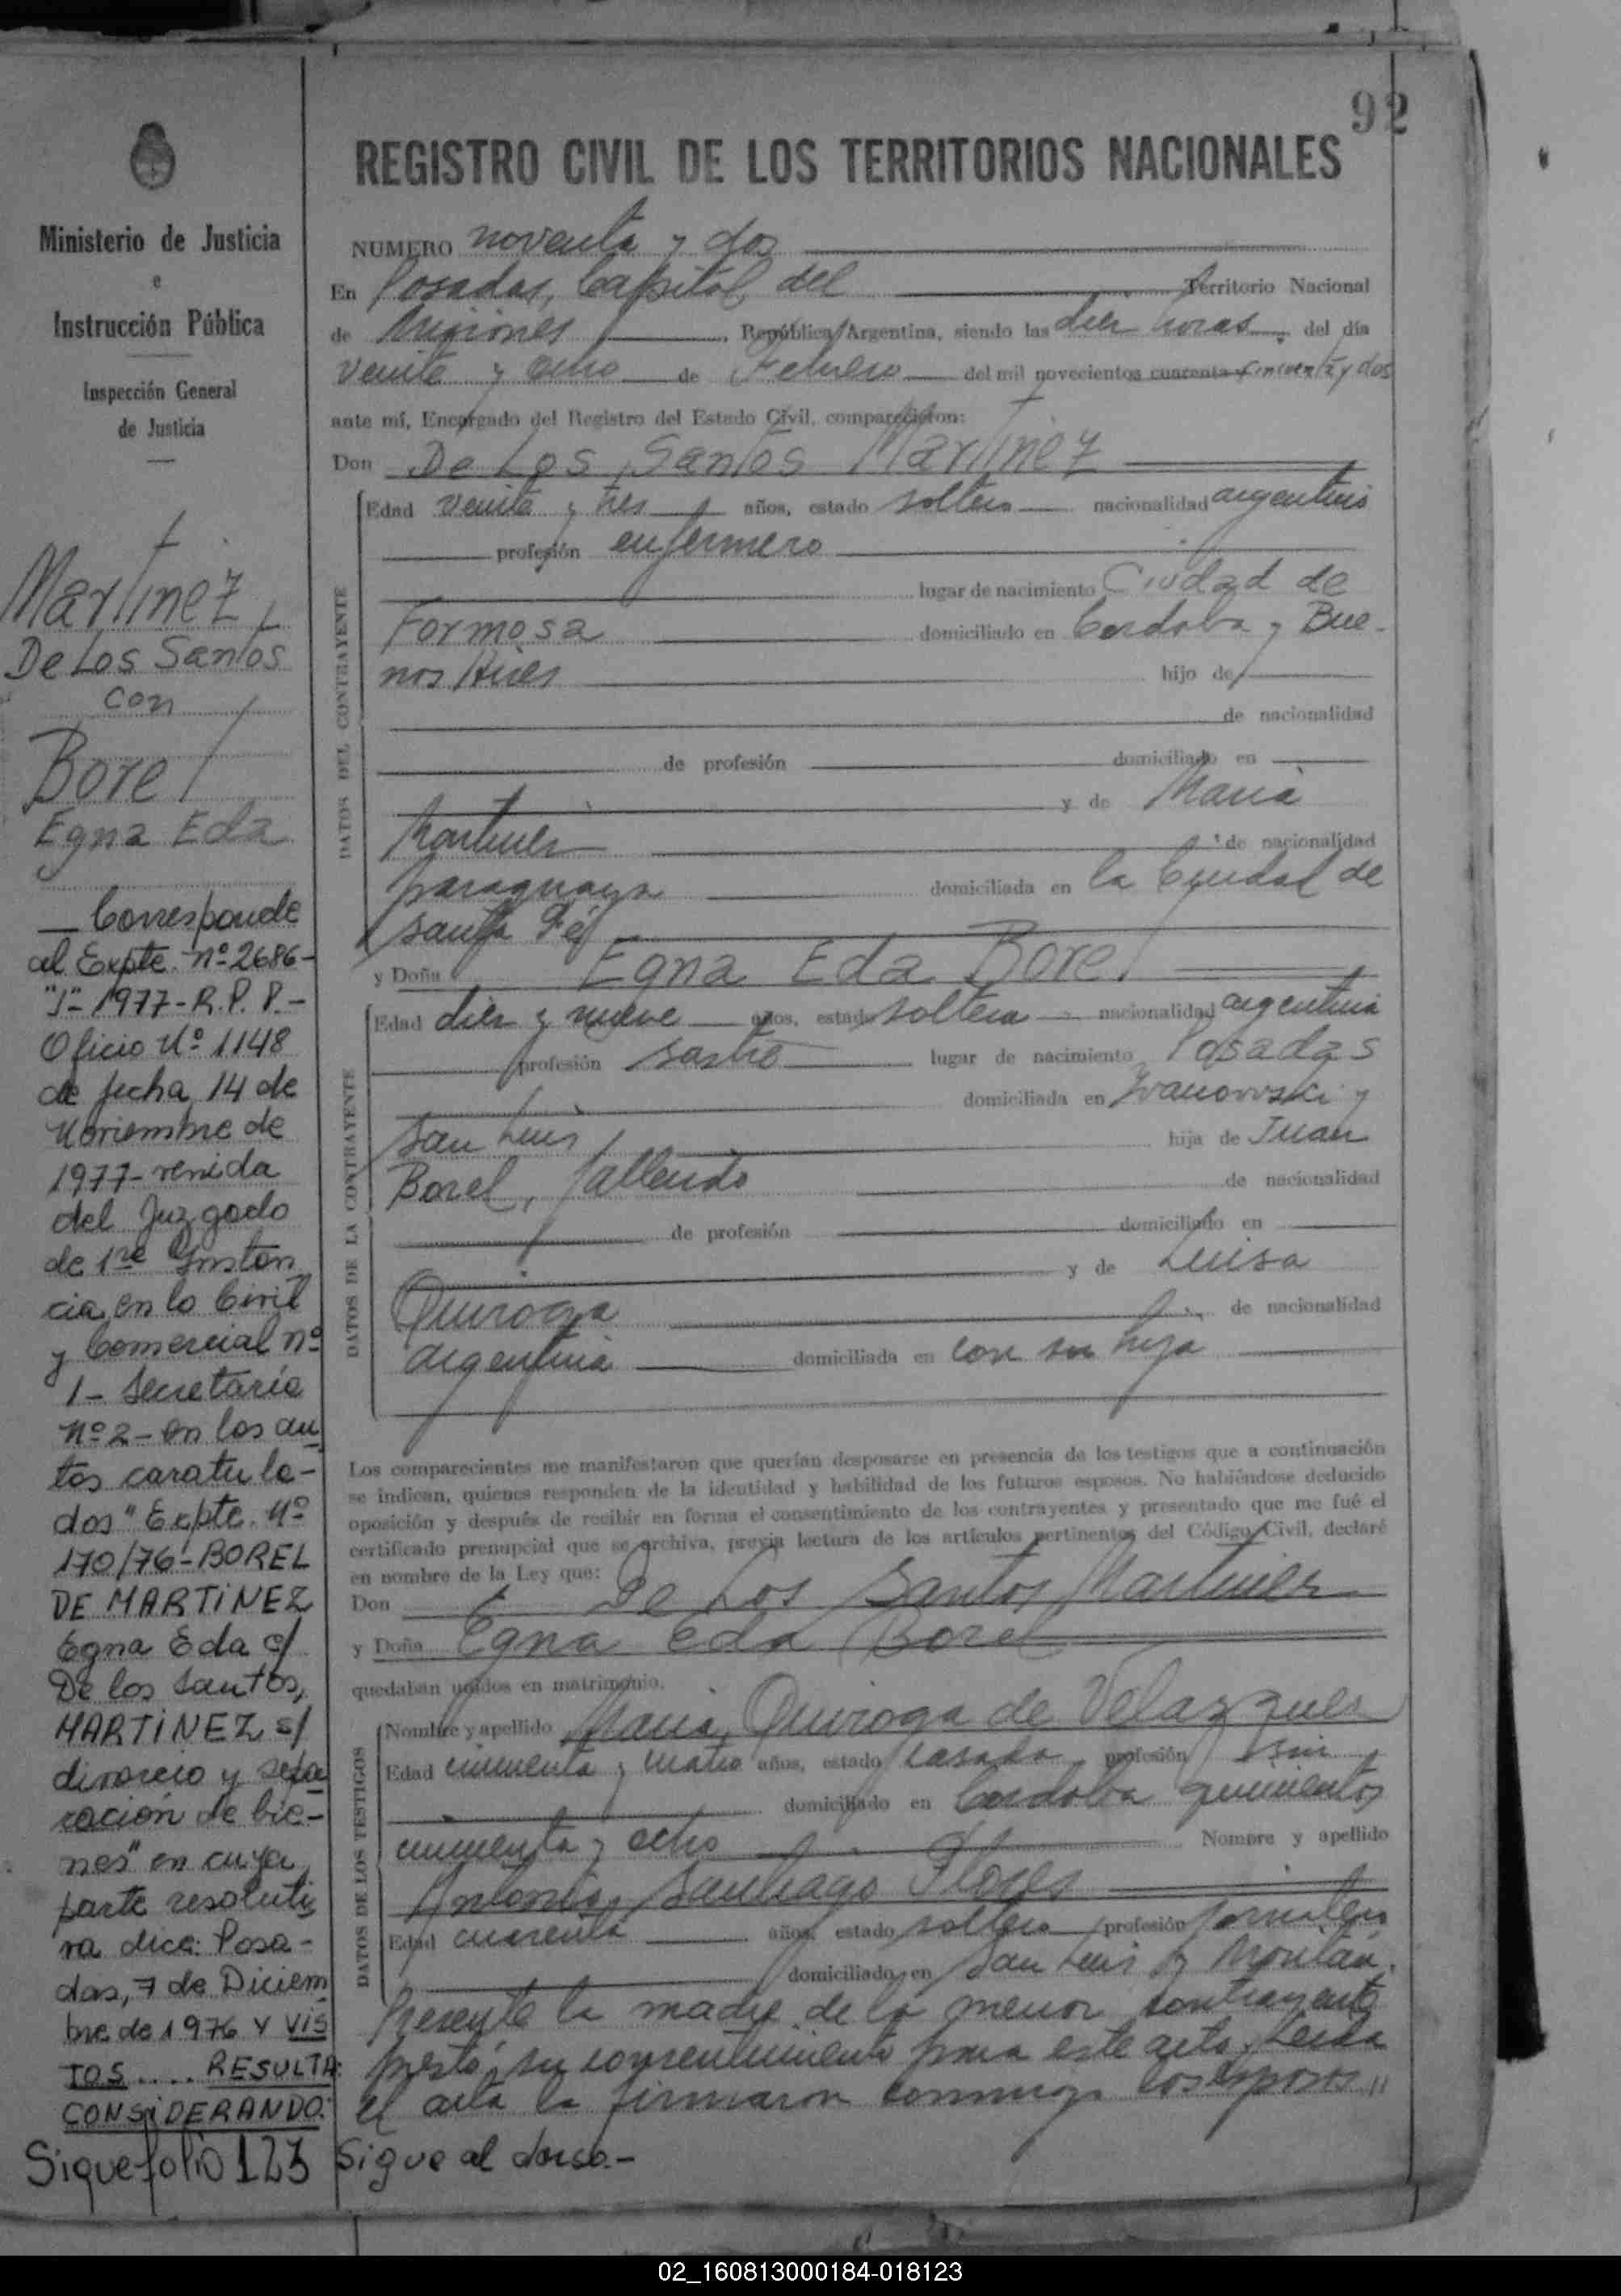 92
REGISTRO CIVIL DE LOS TERRITORIOS NACIONALES
Ministerio de Justicia
e
Instrucción Pública
Inspección General
de Justicia
Martinez,
De Los Santos
con
Borel
Egna Eda
— Corresponde
al Expte. nº 2686-
"J"- 1977- R.P.P.-
Oficio Nº 1148
de fecha 14 de
Noviembre de
1977- venida
del Juzgado
de 1ra Instan
cia en lo Civil
y Comercial nº
1- Secretaria
nº 2- en los au
tos caratula-
dos "Expte. Nº
170/76- BOREL
DE MARTINEZ
Egna Eda c/
De los Santos,
MARTINEZ s/
divorcio y sepa
ración de bie-
nes" en cuya
parte resoluti
va dice: Posa-
das, 7 de Diciem
bre de 1976 Y VIS
TOS .... RESULTA:
CONSIDERANDO:
Sigue folio 123
NUMERO noventa y dos
En Posadas, Capital del Territorio Nacional
de Misiones, República Argentina, siendo las diez horas del día
veinte y ocho de Febrero del mil novecientos cuarenta cincuenta y dos
ante mí, Encargado del Registro del Estado Civil, comparecieron:
Don De Los Santos Martinez
DATOS DEL CONTRAYENTE
Edad veinte y tres años, estado soltero nacionalidad argentino
profesión enfermero
lugar de nacimiento Ciudad de
Formosa domiciliado en Cordoba y Bue-
nos Aires hijo de
de nacionalidad
de profesión domiciliado en
y de Maria
Martinez de nacionalidad
paraguaya domiciliada en la Ciudad de
Santa Fé
y Doña Egna Eda Borel
DATOS DE LA CONTRAYENTE
Edad diez y nueve años, estado soltera nacionalidad argentina
profesión sastre lugar de nacimiento Posadas
domiciliada en Ivanovski y
San Luis hija de Juan
Borel, fallecido de nacionalidad
de profesión domiciliado en
y de Luisa
Quiroga de nacionalidad
argentina domiciliada en con su hija
Los comparecientes me manifestaron que querían desposarse en presencia de los testigos que a continuación
se indican, quienes responden de la identidad y habilidad de los futuros esposos. No habiéndose deducido
oposición y después de recibir en forma el consentimiento de los contrayentes y presentado que me fué el
certificado prenupcial que se archiva, previa lectura de los artículos pertinentes del Código Civil, declaré
en nombre de la Ley que:
Don De Los Santos Martinez
y Doña Egna Eda Borel
quedaban unidos en matrimonio.
DATOS DE LOS TESTIGOS
Nombre y apellido Maria Quiroga de Velazquez
Edad cincuenta y cuatro años, estado casada profesión sin
domiciliado en Cordoba quinientos
cincuenta y ocho Nombre y apellido
Antonio Santiago Flores
Edad cuarenta años, estado soltero profesión jornalero
domiciliado en San Luis y
Presente la madre de la menor contrayente
prestó su consentimiento para este acto. Leida
el acta la firmaron conmigo los esposos //
Sigue al dorso.-
02_160813000184-018123